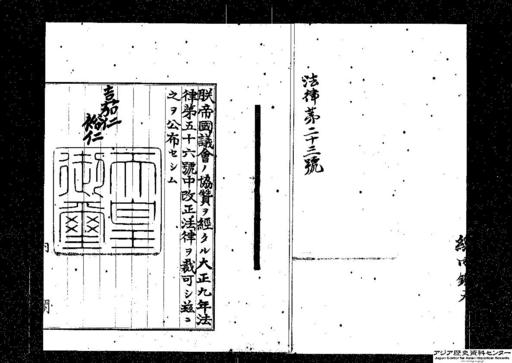 法律第二十三號
朕帝國議會ノ協贊ヲ經タル大正九年法
律第五十六號中改正法律ヲ裁可シ茲ニ
之ヲ公布セシム
嘉仁
裕仁
天皇
御璽
内閣
アジア歴史資料センター
Japan Center for Asian Historical Records